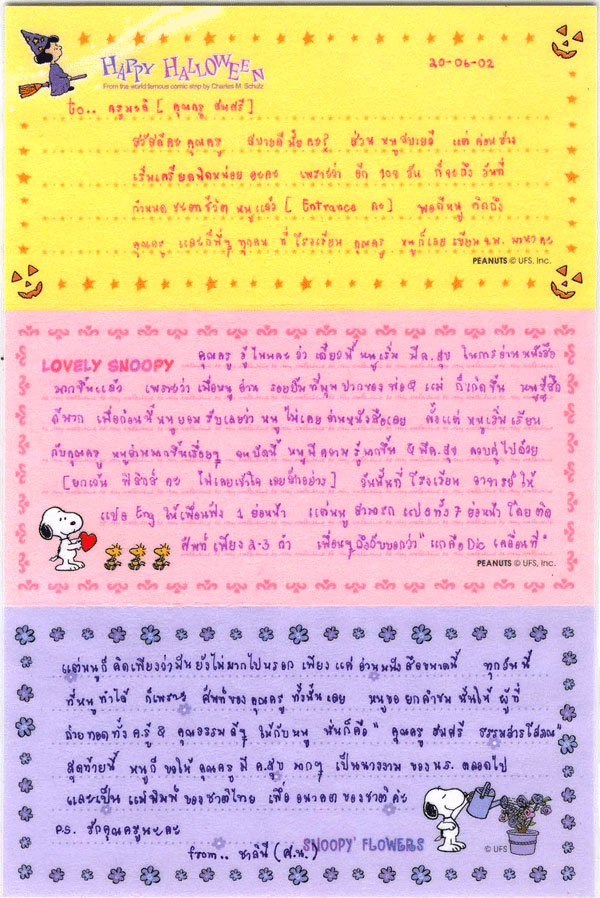 HAPPY HALLOWEEN
From the world famous comic strip by Charles M. Schulz
20-06-02
to.. ครูพงดิ [ คุณครู สมศรี ]
สวัสดีค่ะ คุณครู สบายดีมั้ย คะ? ส่วน หนูสบายดี แต่ ค่อนข้าง
เริ่มเครียดนิดหน่อย อะค่ะ เพราะว่า อีก 108 วัน ก็จะถึง วันที่
กำหนด ชะตาชีวิต หนูแล้ว [ Entrance ค่ะ ] พอดีหนู คิดถึง
คุณครู และก็พี่ๆ ทุกคน ที่ โรงเรียน คุณครู หนูก็เลย เขียน จ.ม. มาหาค่ะ
PEANUTS © UFS, Inc.
LOVELY SNOOPY
คุณครู รู้ไหมคะ ว่า เดี๋ยวนี้ หนูเริ่ม มีค.สุข ในการอ่านหนังสือ
มากขึ้นแล้ว เพราะว่า เมื่อหนู อ่าน รอยยิ้มที่มุมปากของพ่อ & แม่ ก็เกิดขึ้น หนูรู้สึก
ดีมาก เมื่อก่อนนี้ หนูยอมรับเลยว่า หนู ไม่เคย อ่านหนังสือเลย ตั้งแต่ หนูเริ่มเรียน
กับคุณครู หนูอ่านมากขึ้นเรื่อยๆ จนบัดนี้ หนูมีความรู้มากขึ้น & มีค.สุข ควบคู่ไปด้วย
[ ยกเว้น ฟิสิกส์ ค่ะ ไม่เคยเข้าใจ เลยสักอย่าง ] วันนั้นที่ โรงเรียน อาจารย์ ให้
แปล Eng ให้เพื่อนฟัง 1 ย่อหน้า แต่หนู สามารถ แปลทั้ง 7 ย่อหน้า โดย ติด
ศัพท์ เพียง 2-3 คำ เพื่อนๆ ถึงกับบอกว่า " แกคือ Dic เคลื่อนที่ "
PEANUTS © UFS, Inc.
แต่หนูก็ คิดเพียงว่ามันยังไม่มากไปหรอก เพียงแค่ อ่านหนังสือขนาดนี้ ทุกวันนี้
ที่หนูทำได้ ก็เพราะ ศัพท์ของคุณครู ทั้งนั้นเลย หนูขอ ยกคำชม นั้นให้ ผู้ที่
ถ่ายทอดทั้ง ค.รู้ & คุณธรรมดีๆ ให้กับหนู นั่นก็คือ " คุณครู สมศรี ธรรมสารโสภณ "
สุดท้ายนี้ หนูก็ ขอให้ คุณครู มี ค.สุข มากๆ เป็นนางงาม ของ น.ร. ตลอดไป
และเป็น แม่พิมพ์ ของชาติไทย เพื่อ อนาคต ของชาติค่ะ
P.S. รักคุณครูนะคะ
from.. ชาลินี (ส.น.)
SNOOPY FLOWERS
© UFS